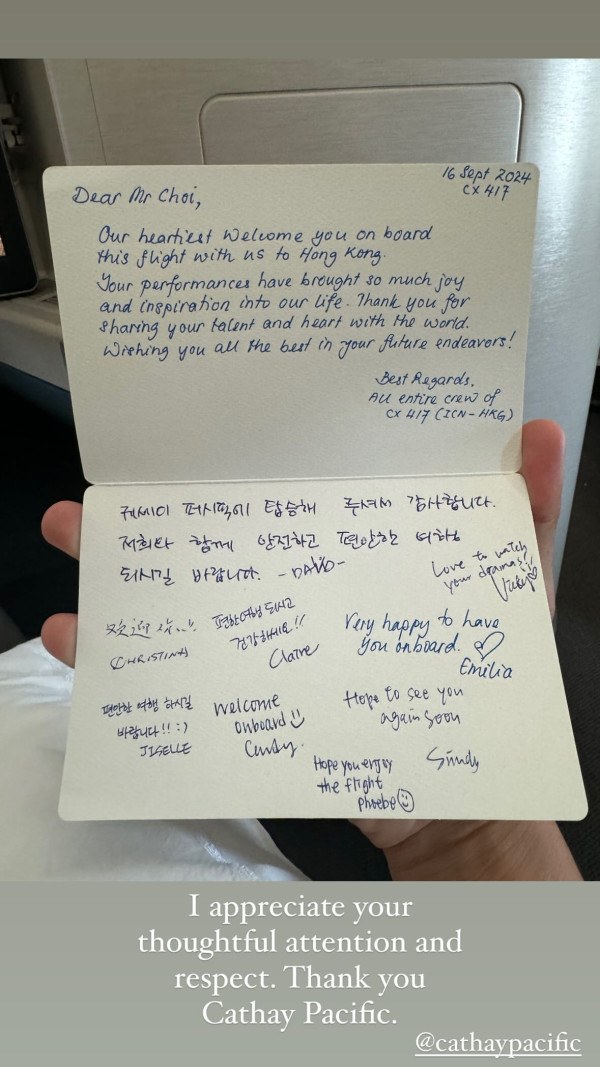 16 Sept 2024
CX 417
Dear Mr Choi,
Our heartiest Welcome you on board
this flight with us to Hong Kong.
Your performances have brought so much joy
and inspiration into our life. Thank you for
sharing your talent and heart with the world.
Wishing you all the best in your future endeavors!
Best Regards,
All entire crew of
CX 417 (ICN-HKG)
케세이 퍼시픽에 탑승해 주셔서 감사합니다.
저희와 함께 안전하고 편안한 여행
되시길 바랍니다. -DAVID-
Love to watch
your dramas!
欢迎
CHRISTINA
편한여행 되시고
건강하세요!!
Claire
Very happy to have
you onboard.
Emilia
편안한 여행 하시길
바랍니다!! :)
JISELLE
Welcome
onboard
Cindy.
Hope to see you
again soon
Sindy
Hope you enjoy
the flight
Phoebe
I appreciate your
thoughtful attention and
respect. Thank you
Cathay Pacific.
@cathaypacific